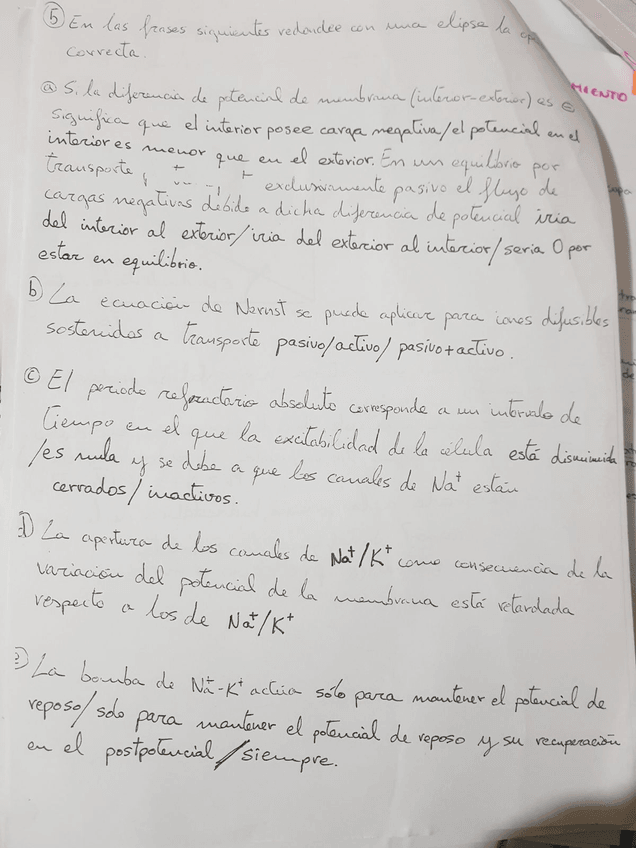 ⑤ En las frases siguientes redondee con una elipse la
correcta.
ⓐ Si la diferencia de potencial de membrana (interior-exterior) es ⊖
significa que el interior posee carga negativa/el potencial en el
interior es menor que en el exterior. En un equilibrio por
transporte exclusivamente pasivo el flujo de
cargas negativas debido a dicha diferencia de potencial iria
del interior al exterior/iria del exterior al interior/seria 0 por
estar en equilibrio.
ⓑ La ecuación de Nernst se puede aplicar para iones difusibles
sostenidos a transporte pasivo/activo/pasivo+activo.
ⓒ El periodo refractario absoluto corresponde a un intervalo de
tiempo en el que la excitabilidad de la célula está disminuida
/es nula y se debe a que los canales de Na⁺ están
cerrados/inactivos.
d) La apertura de los canales de Na⁺/K⁺ como consecuencia de la
variación del potencial de la membrana está retardada
respecto a los de Na⁺/K⁺
e) La bomba de Na⁺-K⁺ actúa sólo para mantener el potencial de
reposo/solo para mantener el potencial de reposo y su recuperación
en el postpotencial/siempre.
MIENTO